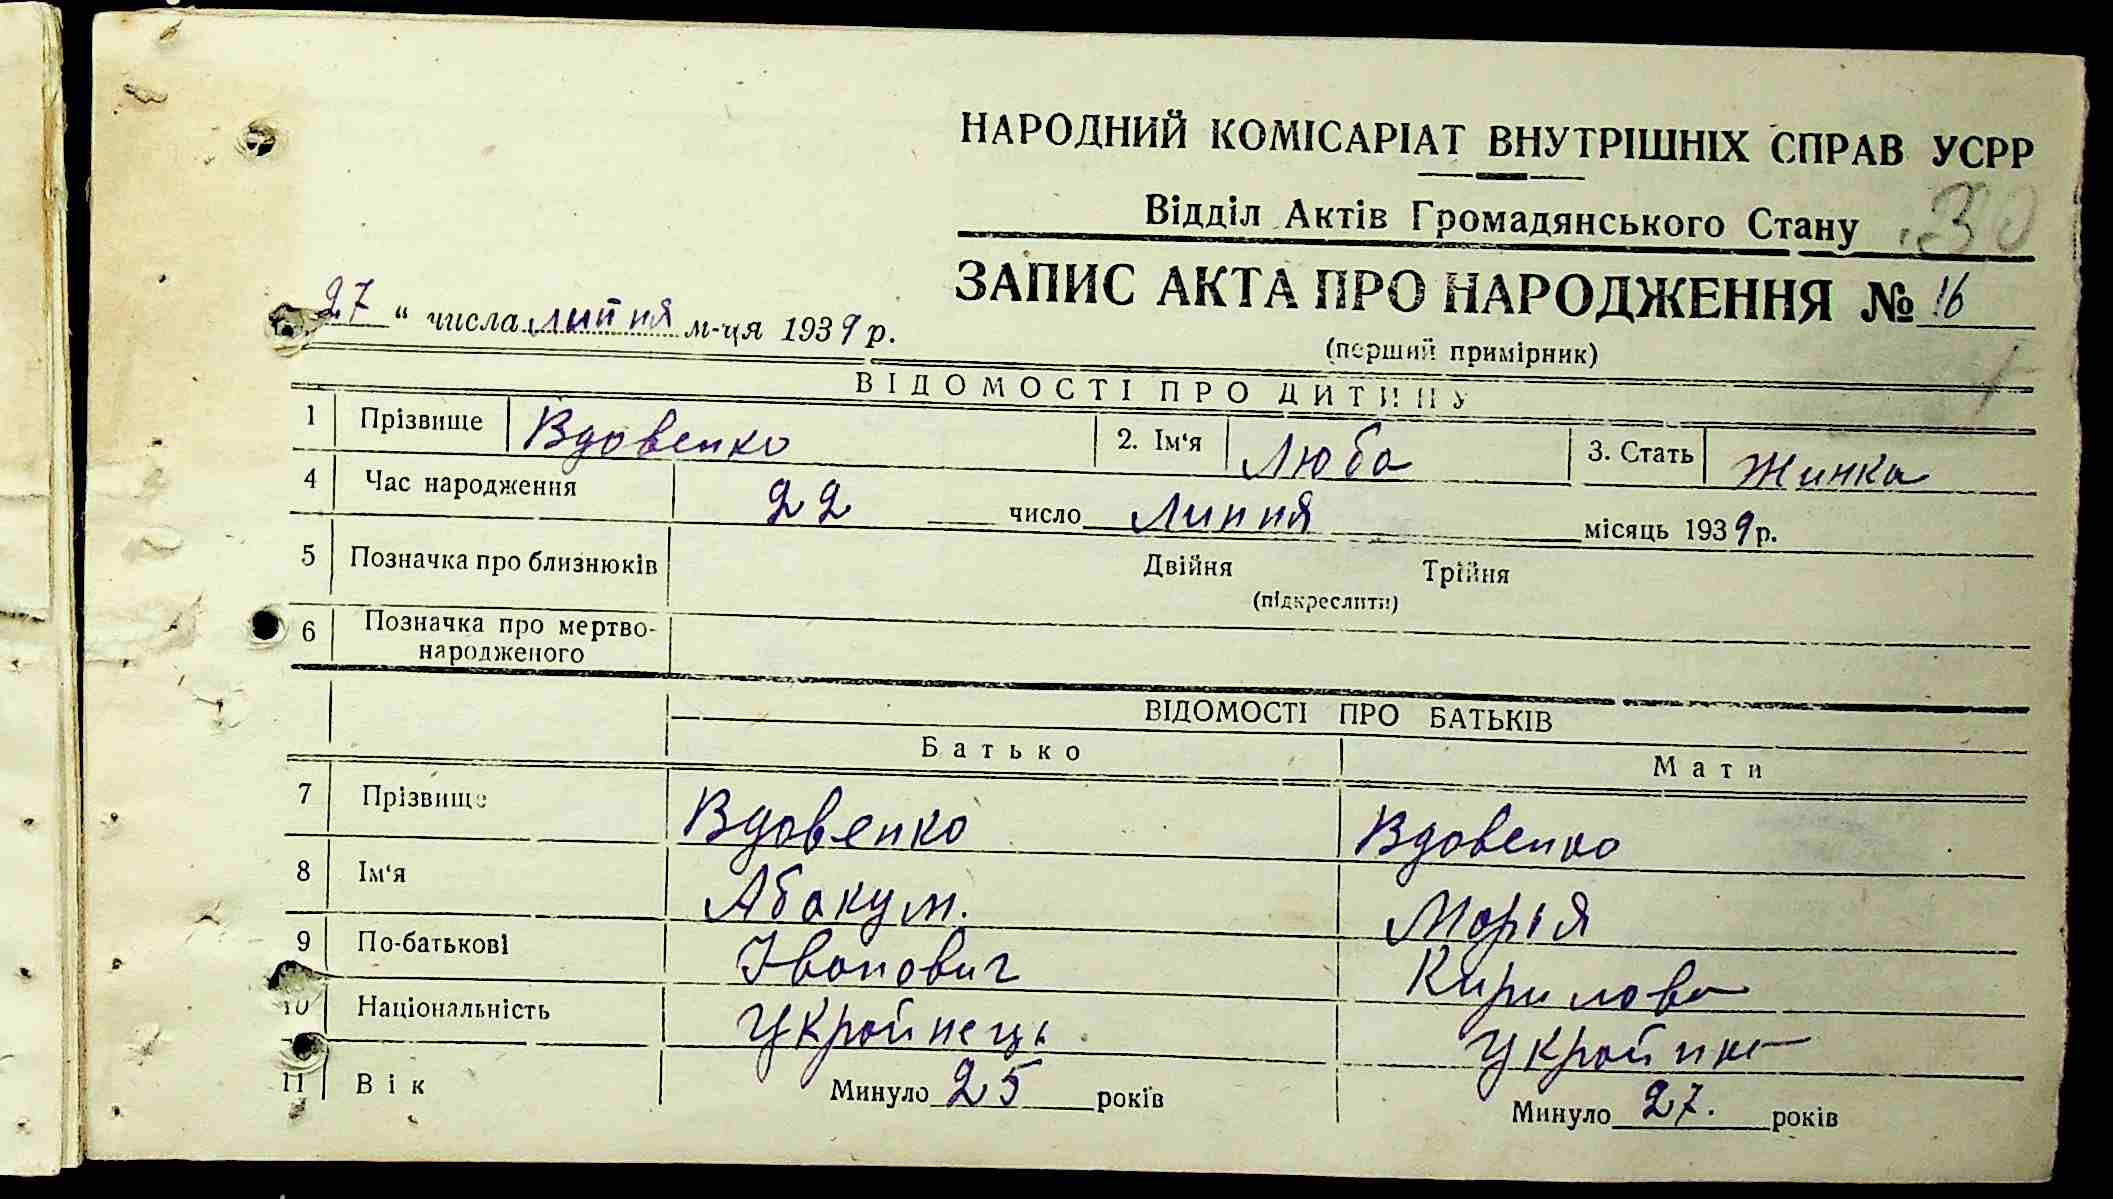 НАРОДНИЙ КОМІСАРІАТ ВНУТРІШНІХ СПРАВ УСРР
Відділ Актів Громадянського Стану 30
ЗАПИС АКТА ПРО НАРОДЖЕННЯ № 16
27 " числа липня м-ця 1939 р.
(перший примірник)
ВІДОМОСТІ ПРО ДИТИНУ
1 Прізвище Вдовенко 2. Ім'я Люба 3. Стать Жинка
4 Час народження 22 число Липня місяць 1939 р.
5 Позначка про близнюків Двійня Трійня
(підкреслити)
6 Позначка про мертво-
народженого
ВІДОМОСТІ ПРО БАТЬКІВ
Батько Мати
7 Прізвище Вдовенко Вдовенко
8 Ім'я Абакум. Марія
9 По-батькові Іванович Кирилова
10 Національність Українець Українка
11 Вік Минуло 25 років Минуло 27. років